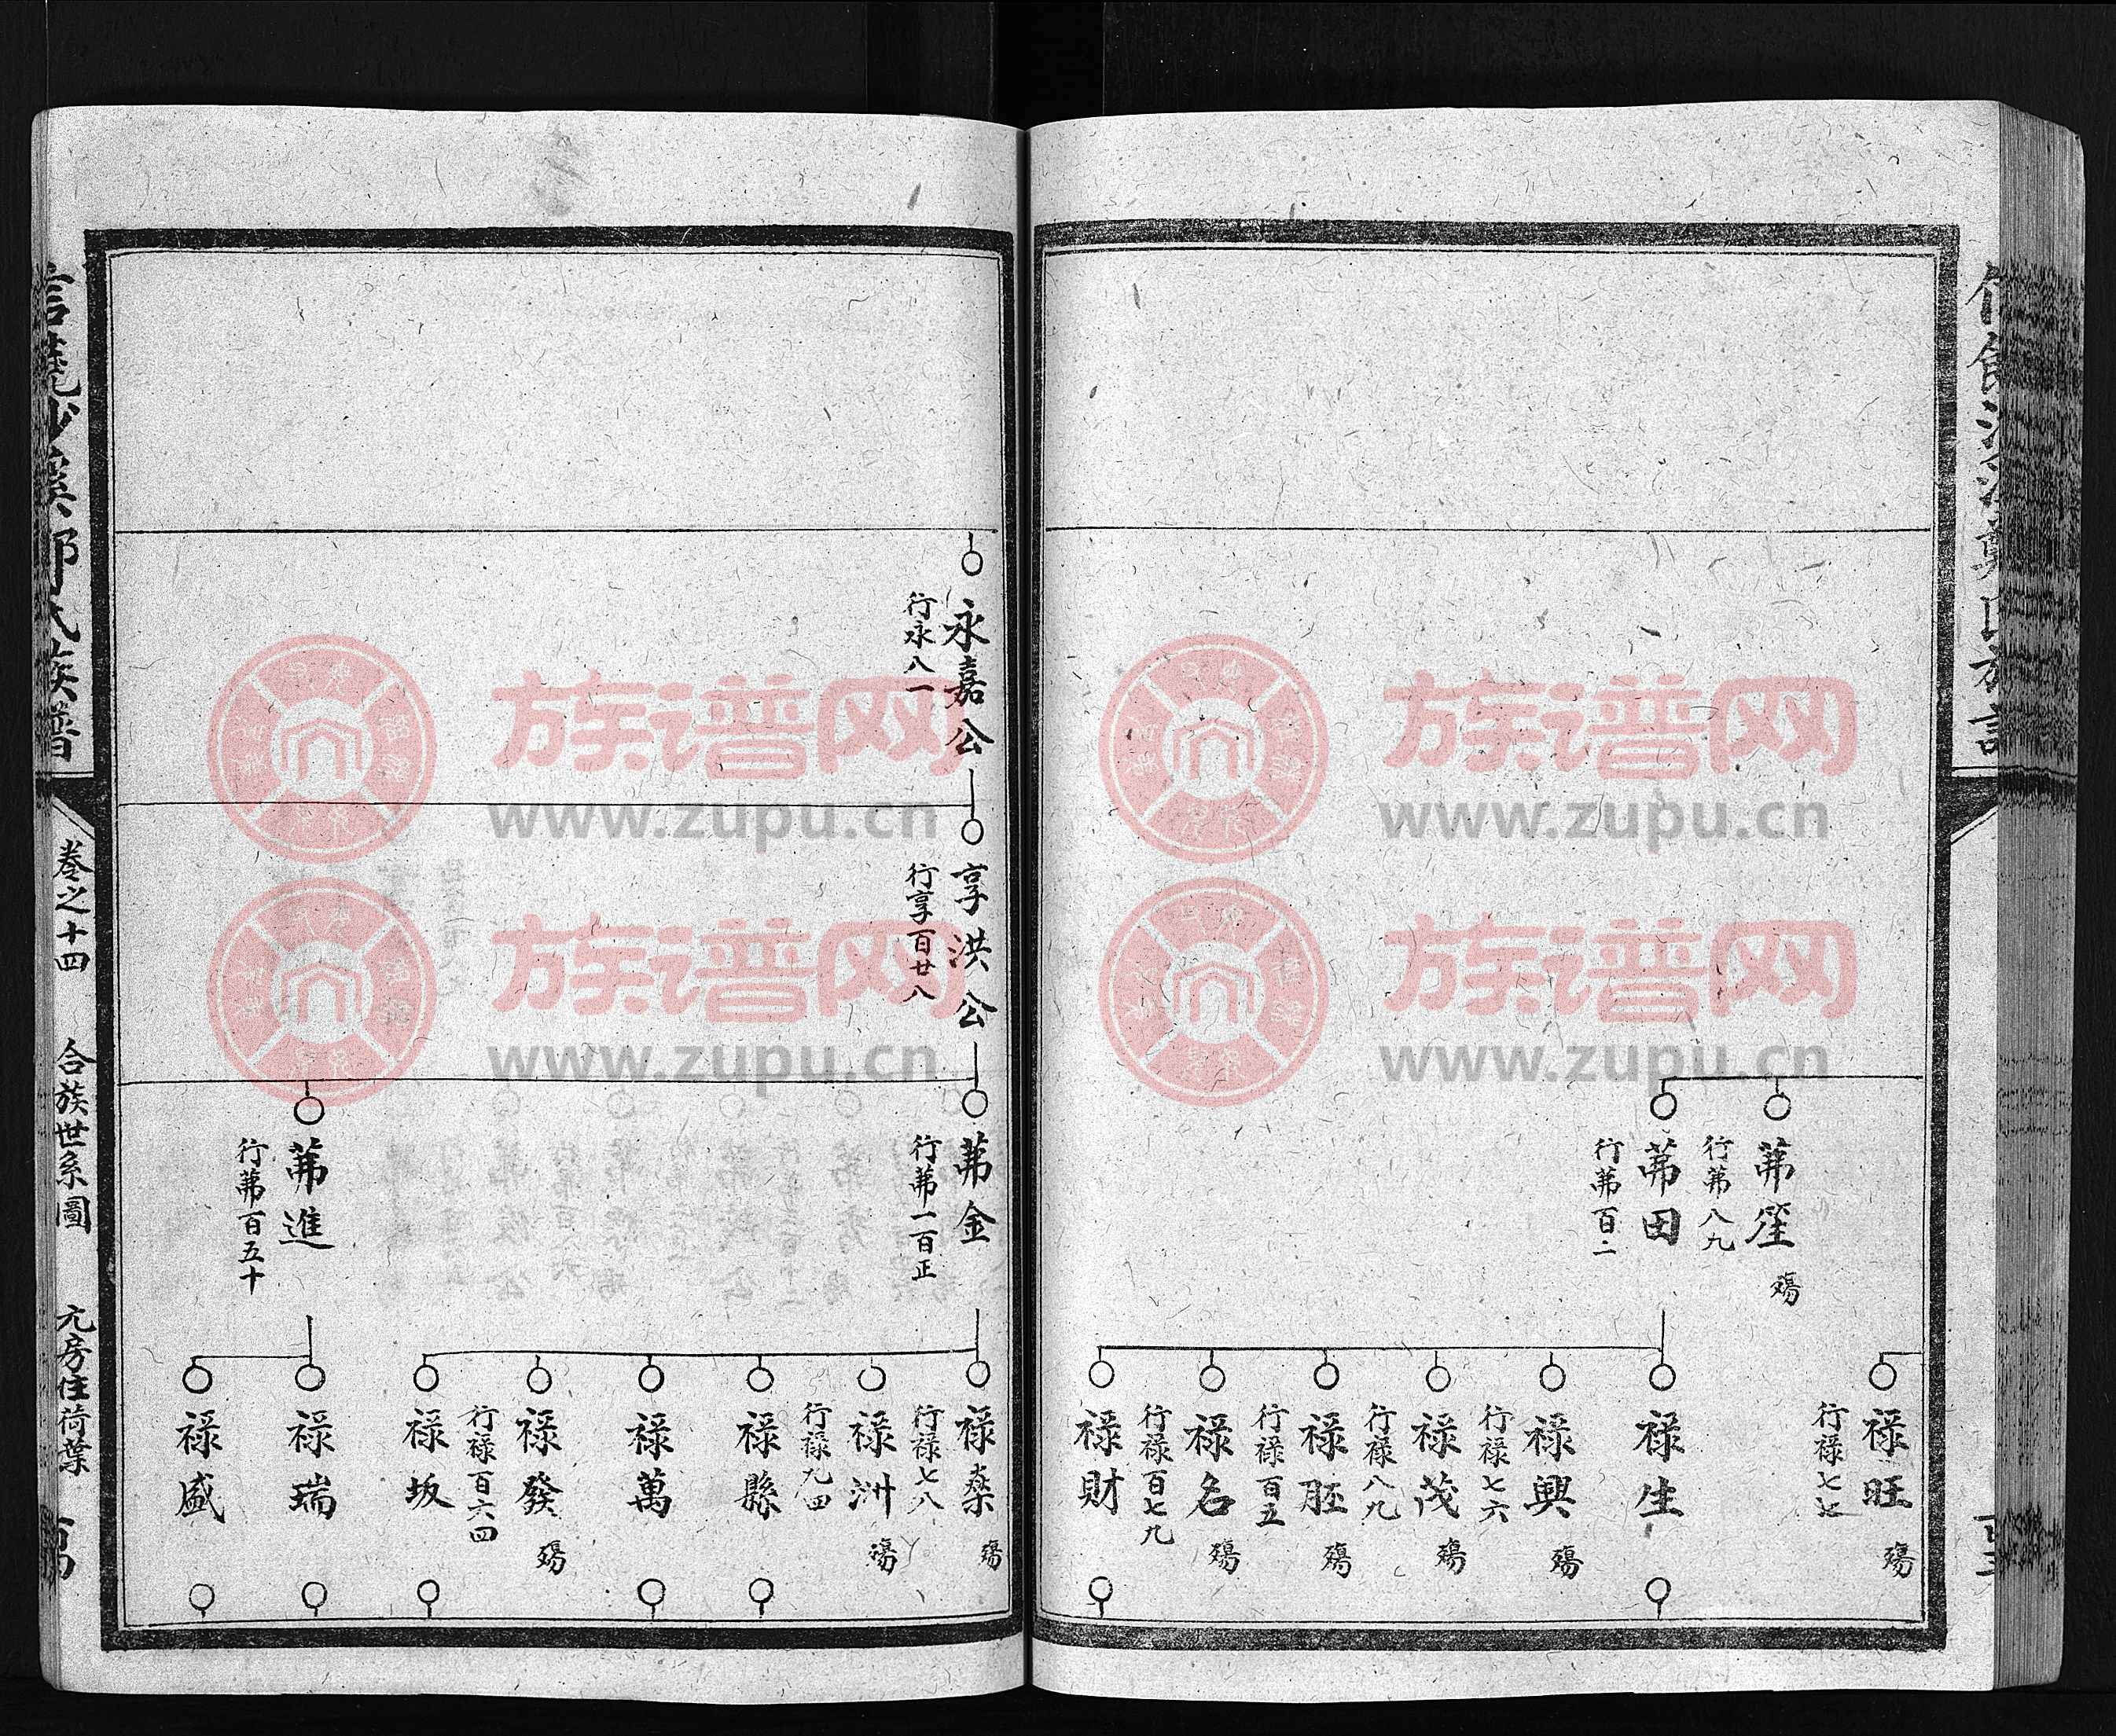 茀垈 殤
行茀八九
茀田
行茀百二
祿旺 殤
行祿七七
祿生
祿興 殤
行祿七六
祿茂 殤
行祿八九
祿胵 殤
行祿百五
祿名 殤
行祿百七九
祿財
永嘉公
行永八一
享洪公
行享百廿八
茀金
行茀一百正
茀進
行茀百五十
祿桊 殤
行祿七八
祿洲 殤
行祿九四
祿縣
祿萬
祿發 殤
行祿百六四
祿坂
祿瑞
祿盛
族譜
卷之十四 合族世系圖 元房住荷葉
族谱网
www.zupu.cn
族谱网
www.zupu.cn
族谱网
www.zupu.cn
族谱网
www.zupu.cn